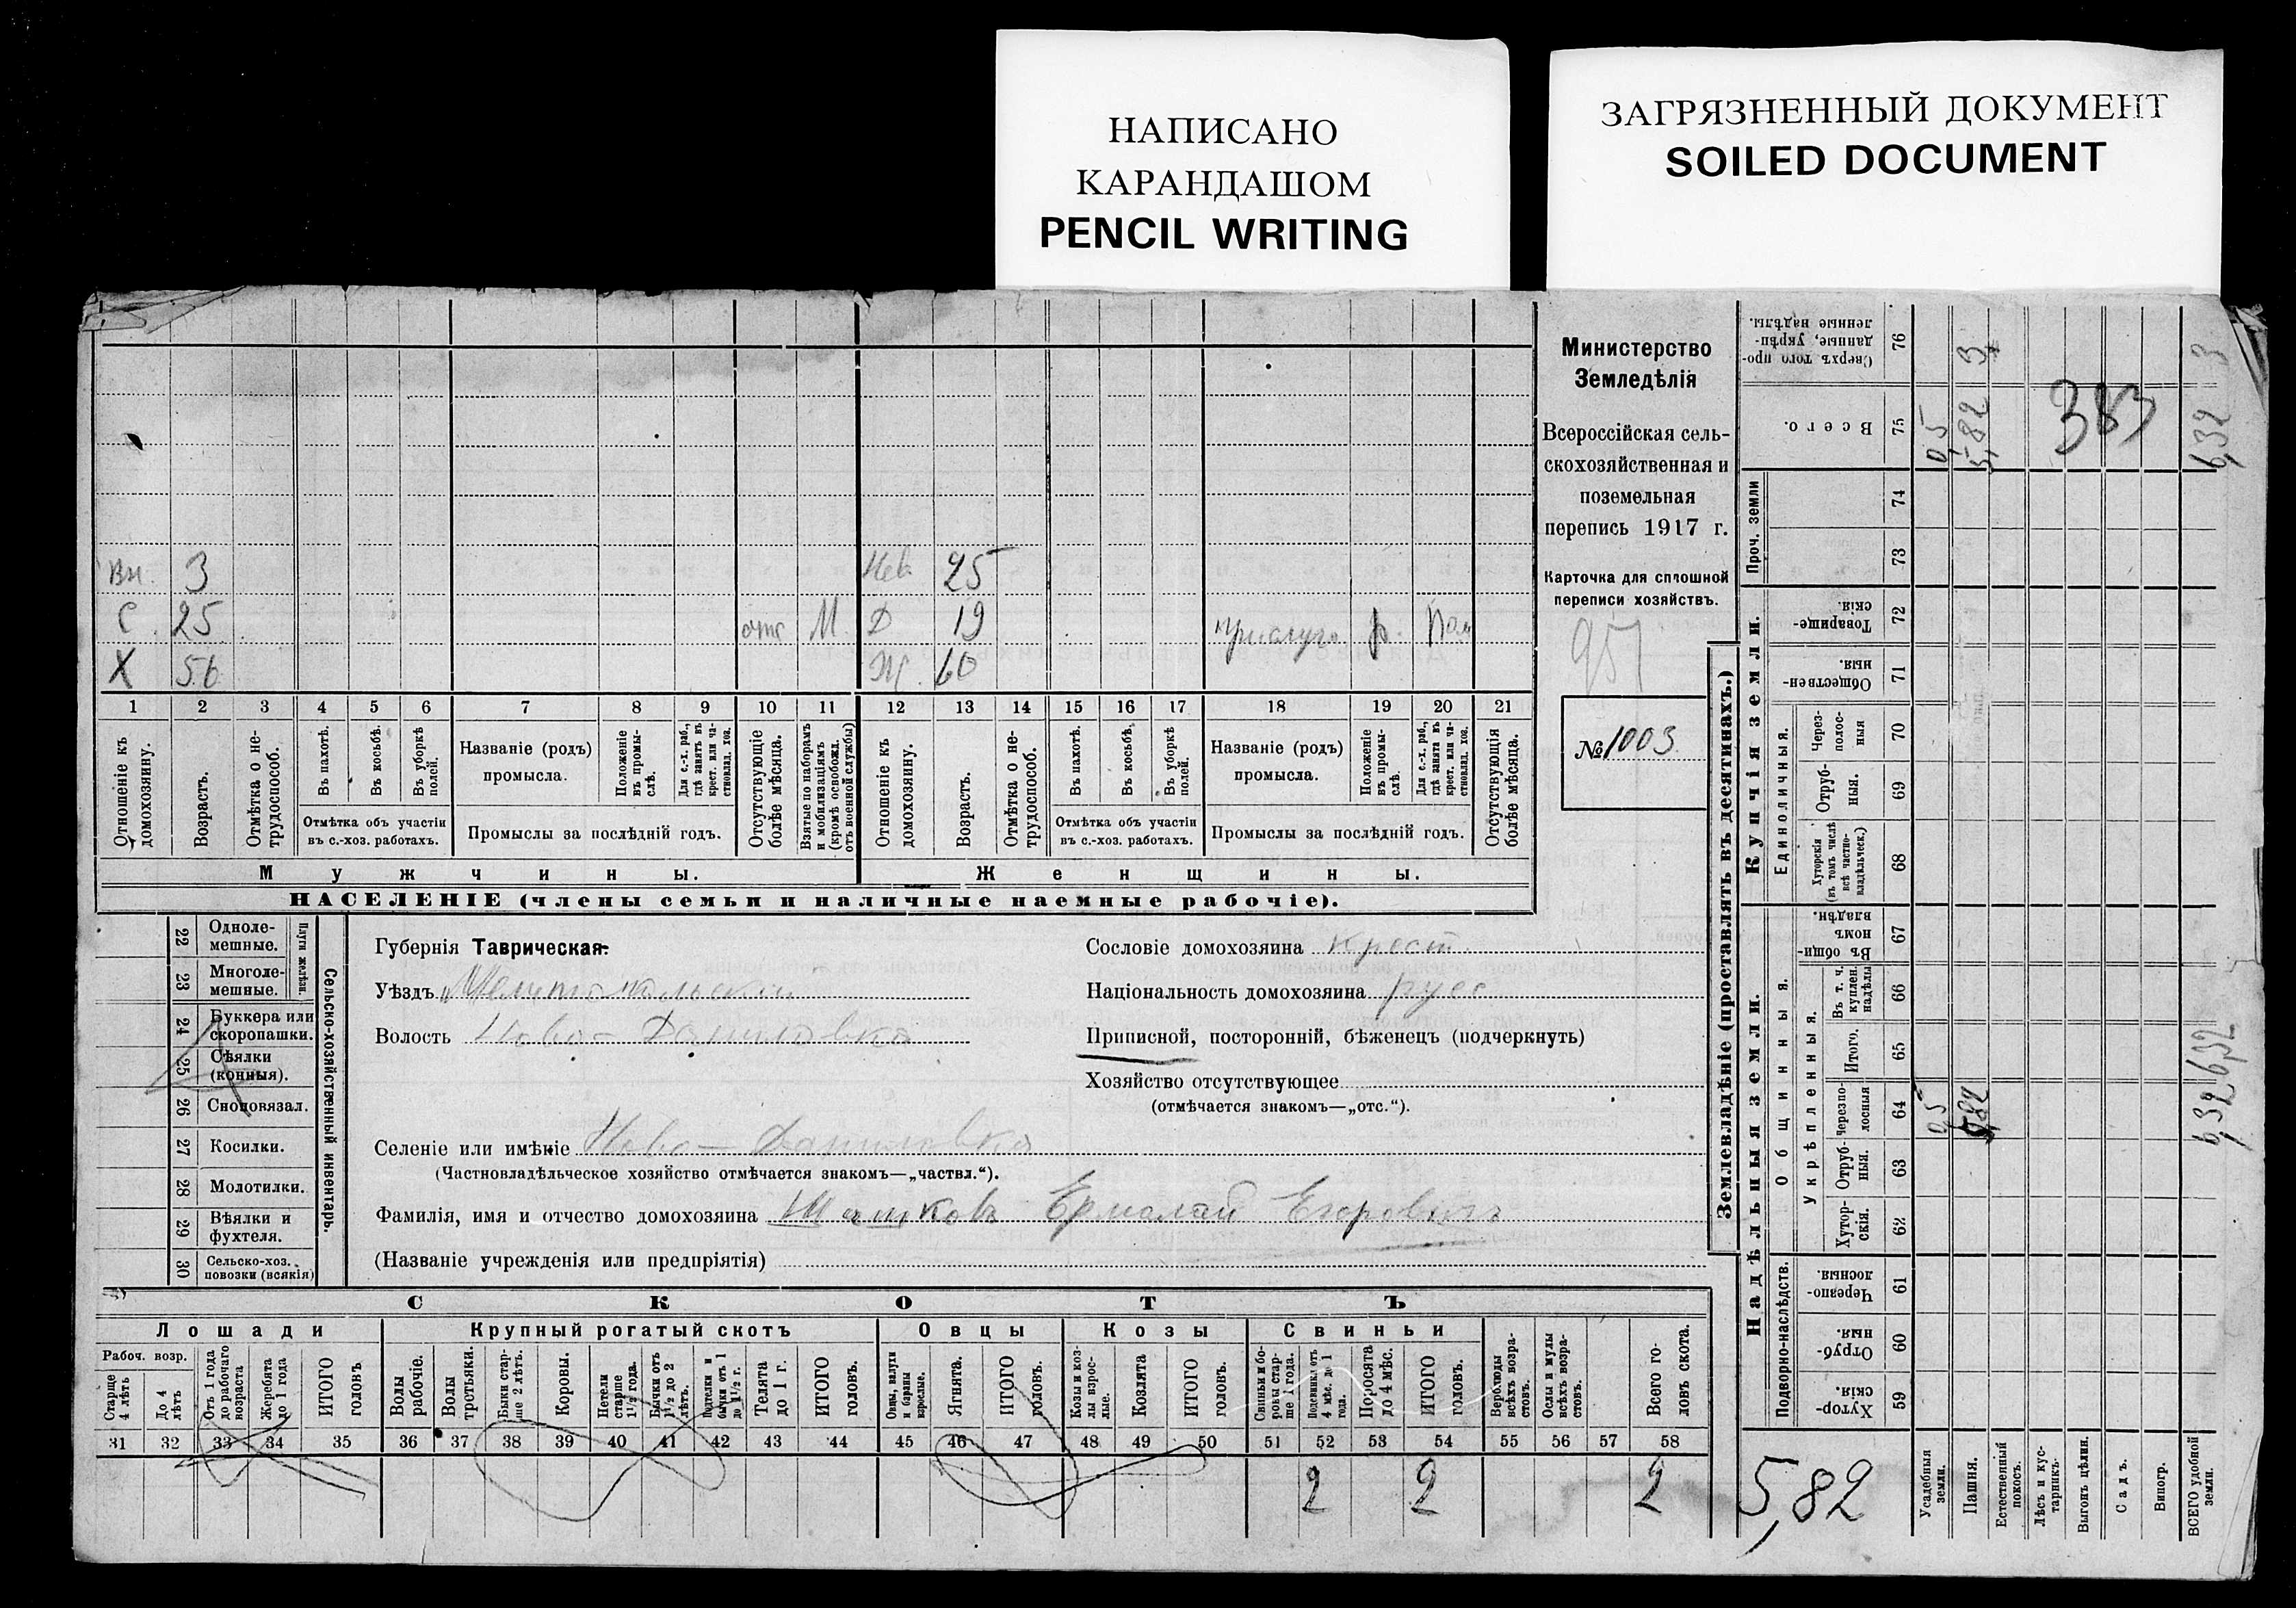 НАПИСАНО
КАРАНДАШОМ
PENCIL WRITING
ЗАГРЯЗНЕННЫЙ ДОКУМЕНТ
SOILED DOCUMENT
Министерство
Земледѣлія
Всероссійская сель-
скохозяйственная и
поземельная
перепись 1917 г.
Карточка для сплошной
переписи хозяйствъ.
957
№ 1003.
Вн. 3 Нев. 25
С. 25 отс М. Д 19 прислуга р.
Х 56 Ж. 60
1 2 3 4 5 6 7 8 9 10 11 12 13 14 15 16 17 18 19 20 21
Отношеніе къ домохозяину.
Возрастъ.
Отмѣтка о не-трудоспособ.
Въ пахотѣ.
Въ косьбѣ.
Въ уборкѣ полей.
Отмѣтка объ участіи
въ с.-хоз. работахъ.
Названіе (родъ)
промысла.
Положеніе въ промы-слѣ.
Для с.-х. раб., гдѣ занятъ въ крест. или ча-стновлад. хоз.
Промыслы за послѣдній годъ.
Отсутствующіе болѣе мѣсяца.
Взятые по наборамъ и мобилизаціямъ (кромѣ освобожд. отъ военной службы)
Отношеніе къ домохозяину.
Возрастъ.
Отмѣтка о не-трудоспособ.
Въ пахотѣ.
Въ косьбѣ.
Въ уборкѣ полей.
Отмѣтка объ участіи
въ с.-хоз. работахъ.
Названіе (родъ)
промысла.
Положеніе въ промы-слѣ.
Для с.-х. раб., гдѣ занята въ крест. или ча-стновлад. хоз.
Промыслы за послѣдній годъ.
Отсутствующія болѣе мѣсяца.
Мужчины. Женщины.
НАСЕЛЕНІЕ (члены семьи и наличные наемные рабочіе).
22 Одноле-мешные.
23 Многоле-мешные.
Плуги желѣзн.
24 Буккера или скоропашки.
25 Сѣялки (конныя).
26 Сноповязал.
27 Косилки.
28 Молотилки.
29 Вѣялки и фухтеля.
30 Сельско-хоз. повозки (всякія)
Сельско-хозяйственный инвентарь.
Губернія Таврическая.
Уѣздъ Мелитопольскій
Волость Ново-Даниловка
Селеніе или имѣніе Ново-Даниловка
(Частновладѣльческое хозяйство отмѣчается знакомъ—„частвл.“).
Фамилія, имя и отчество домохозяина Ермолай Егоровичъ
(Названіе учрежденія или предпріятія)
Сословіе домохозяина крест.
Національность домохозяина русс
Приписной, посторонній, бѣженецъ (подчеркнуть)
Хозяйство отсутствующее
(отмѣчается знакомъ—„отс.“).
СКОТЪ
Лошади Крупный рогатый скотъ Овцы Козы Свиньи
Рабоч. возр.
Старше 4 лѣтъ
До 4 лѣтъ
Отъ 1 года до рабочаго возраста
Жеребята до 1 года
ИТОГО головъ
Волы рабочіе.
Волы тростьяки.
Быки стар-ше 2 лѣтъ.
Коровы.
Нетели старше 1½ года.
Бычки отъ 1½ до 2 лѣтъ.
Подтелки и бычки отъ 1 до 1½ г.
Телята до 1 г.
ИТОГО головъ.
Овцы, валухи и бараны взрослые.
Ягнята.
ИТОГО головъ.
Козы и коз-лы взрос-лые.
Козлята
ИТОГО головъ.
Свиньи и бо-ровы стар-ше 1 года.
Подсвинки отъ 4 мѣс. до 1 года.
Поросята до 4 мѣс.
ИТОГО головъ.
Верблюды всѣхъ возра-стовъ.
Ослы и мулы всѣхъ возра-стовъ.
Всего го-ловъ скота.
31 32 33 34 35 36 37 38 39 40 41 42 43 44 45 46 47 48 49 50 51 52 53 54 55 56 57 58
2 2 2
Землевладѣніе (проставлять въ десятинахъ.)
Надѣльныя земли. Купчія земли.
Подворно-наслѣдств.
Общинныя.
Укрѣпленныя.
Единоличныя.
Проч. земли
Хутор-скія. 59
Отруб-ныя. 60
Черезпо-лосныя 61
Хутор-скія. 62
Отруб-ныя. 63
Черезпо-лосныя 64
Итого. 65
Въ т. ч. куплен. надѣлы 66
Въ общи-номъ владѣн. 67
Хуторскія (въ томъ числѣ всѣ частно-владѣльческ.) 68
Отруб-ныя. 69
Через-полос-ныя 70
Обществен-ныя. 71
Товарище-скія. 72
73
74
Всего. 75
Сверхъ того про-данные, укрѣп-ленные надѣлы. 76
Усадебныя земли. 0,5 0,5
Пашня. 5,82 5,82 3
Естественный покосъ.
Лѣсъ и кус-тарникъ.
Выгонъ цѣлин.
Садъ.
Виногр.
ВСЕГО удобной земли. 6,32 6,32 6,32 3
383
5,82